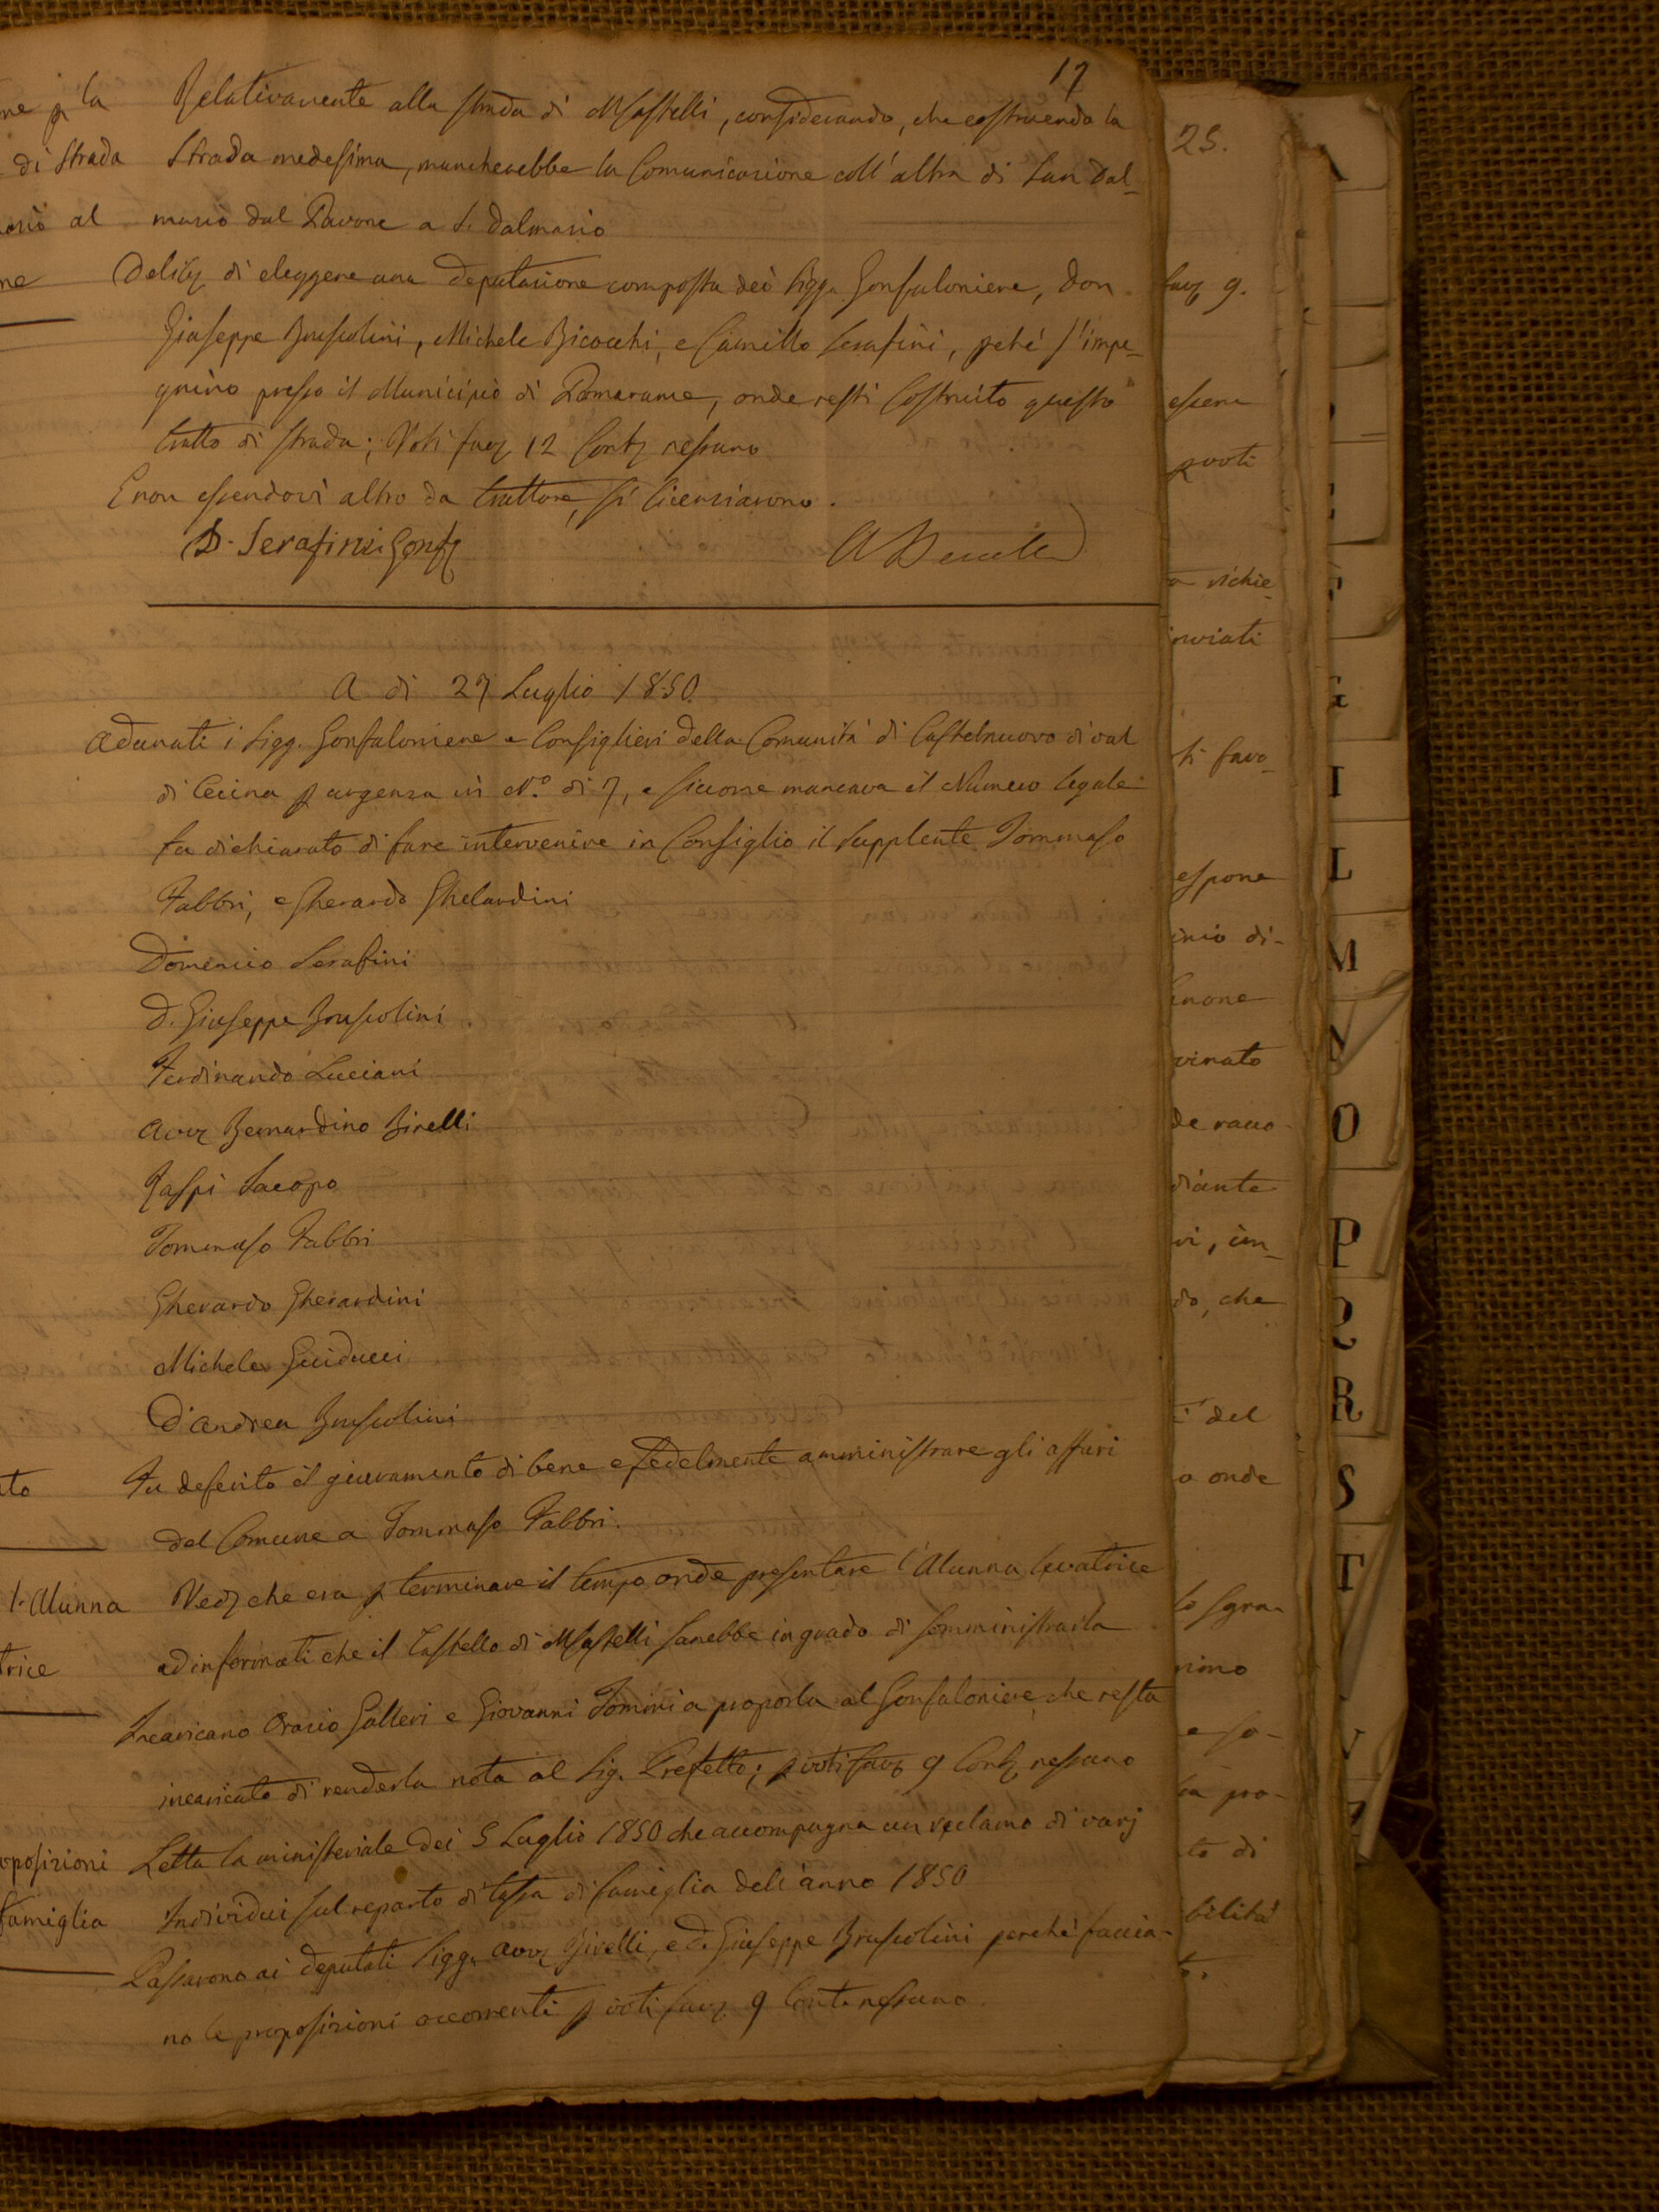 17
ne p la Relativamente alla strada di M Castelli, considerando, che costruendo la
di Strada Strada medesima, mancherebbe la Comunicazione coll'altra di San Dal-
al mazio dal Pavone a S. Dalmazio
ne Delibz di eleggere una Deputazione composta dei Sigg. Gonfaloniere, Don
Giuseppe Bruscolini, Michele Bicocchi, e Camillo Serafini, pché s'impe-
gnino presso il Municipio di Pomarance, onde resti Costruito questo
tratto di strada; Voti favz 12 Contz nessuno
E non essendovi altro da trattare, si licenziarono.
D. Serafini Gonfz
A di 27 Luglio 1850.
Adunati i Sigg. Gonfaloniere e Consiglieri della Comunità di Castelnuovo di val
di Cecina p urgenza in N.º di 7, e siccome mancava il Numero legale
fu dichiarato di fare intervenire in Consiglio il Supplente Tommaso
Fabbri, e Gherardo Ghelardini
Domenico Serafini
D. Giuseppe Bruscolini
Ferdinando Luciani
Avvz Bernardino Birelli
Jacopo
Tommaso Fabbri
Gherardo Gherardini
Michele Guiducci
D Andrea Bruscolini
to Fu deferito il giuramento di bene e fedelmente amministrare gli affari
del Comune a Tommaso Fabbri.
l'Alunna Vedz che era p terminare il tempo onde presentare l'Alunna levatrice
trice ed informati che il Castello di M Castelli sarebbe in grado di somministrarla
Incaricano Orazio Galleri e Giovanni Tomini a proporla al Gonfaloniere, che resta
incaricato di renderla nota al Sig. Prefetto; p voti favz 9 Contz nessuno
posizioni Letta la ministeriale dei 5 Luglio 1850 che accompagna un reclamo di varj
famiglia Individui sul reparto di tassa di famiglia dell'anno 1850
Passarono ai deputati Sigg. Avvz Birelli, e D. Giuseppe Bruscolini perché faccia-
no le proposizioni occorrenti p voti favz 9 Cont. nessuno.
25.
favz 9.
essere
p voti
a richie-
inviati
ti favo-
espone
inio di-
vinato
de racco-
diante
vi, in-
do, che
del
a onde
lo sgra-
nimo
e so-
pro-
to di
bilità
I
L
M
N
O
P
Q
R
S
T